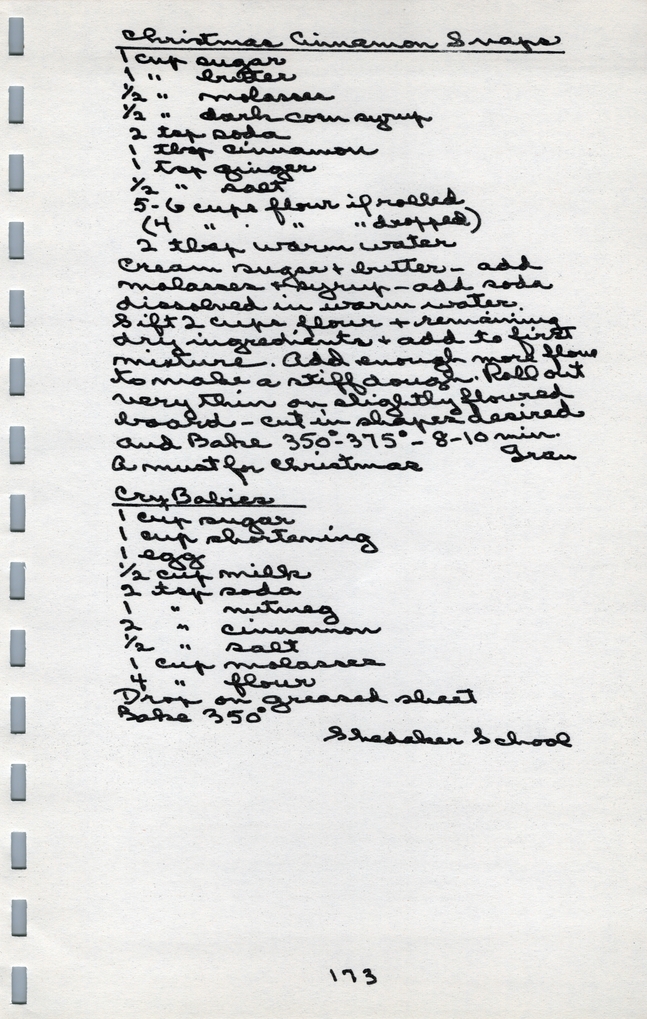 Christmas Cinnamon Snaps
1 cup sugar
1 " butter
1/2 " molasses
1/2 " dark corn syrup
2 tsp soda
1 tbsp cinnamon
1 tsp ginger
1/2 " salt
5-6 cups flour if rolled
(4 " . " " dropped)
2 tbsp warm water
Cream sugar + butter - add
molasses + syrup - add soda
dissolved in warm water.
Sift 2 cups flour + remaining
dry ingredients + add to first
mixture. Add enough more flour
to make a stiff dough. Roll out
very thin on slightly floured
board - cut in shapes desired
and Bake 350°-375° - 8-10 min.
A must for Christmas Gran
Cry Babies
1 cup sugar
1 cup shortening
1 egg
1/2 cup milk
2 tsp soda
1 " nutmeg
2 " cinnamon
1/2 " salt
1 cup molasses
4 " flour
Drop on greased sheet
Bake 350°
Shedaker School
173